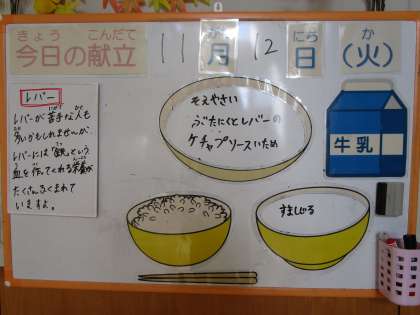 きょう こんだて
今日の献立
11 がつ 12 にち
月 日
か
(火)
レバー
レバーが苦手な人も
多いかもしれませんが、
レバーには「鉄」という
血を作ってくれる栄養が
たくさんふくまれて
いますよ。
そえやさい
ぶたにくとレバーの
ケチャップソースいため
すましじる
牛乳